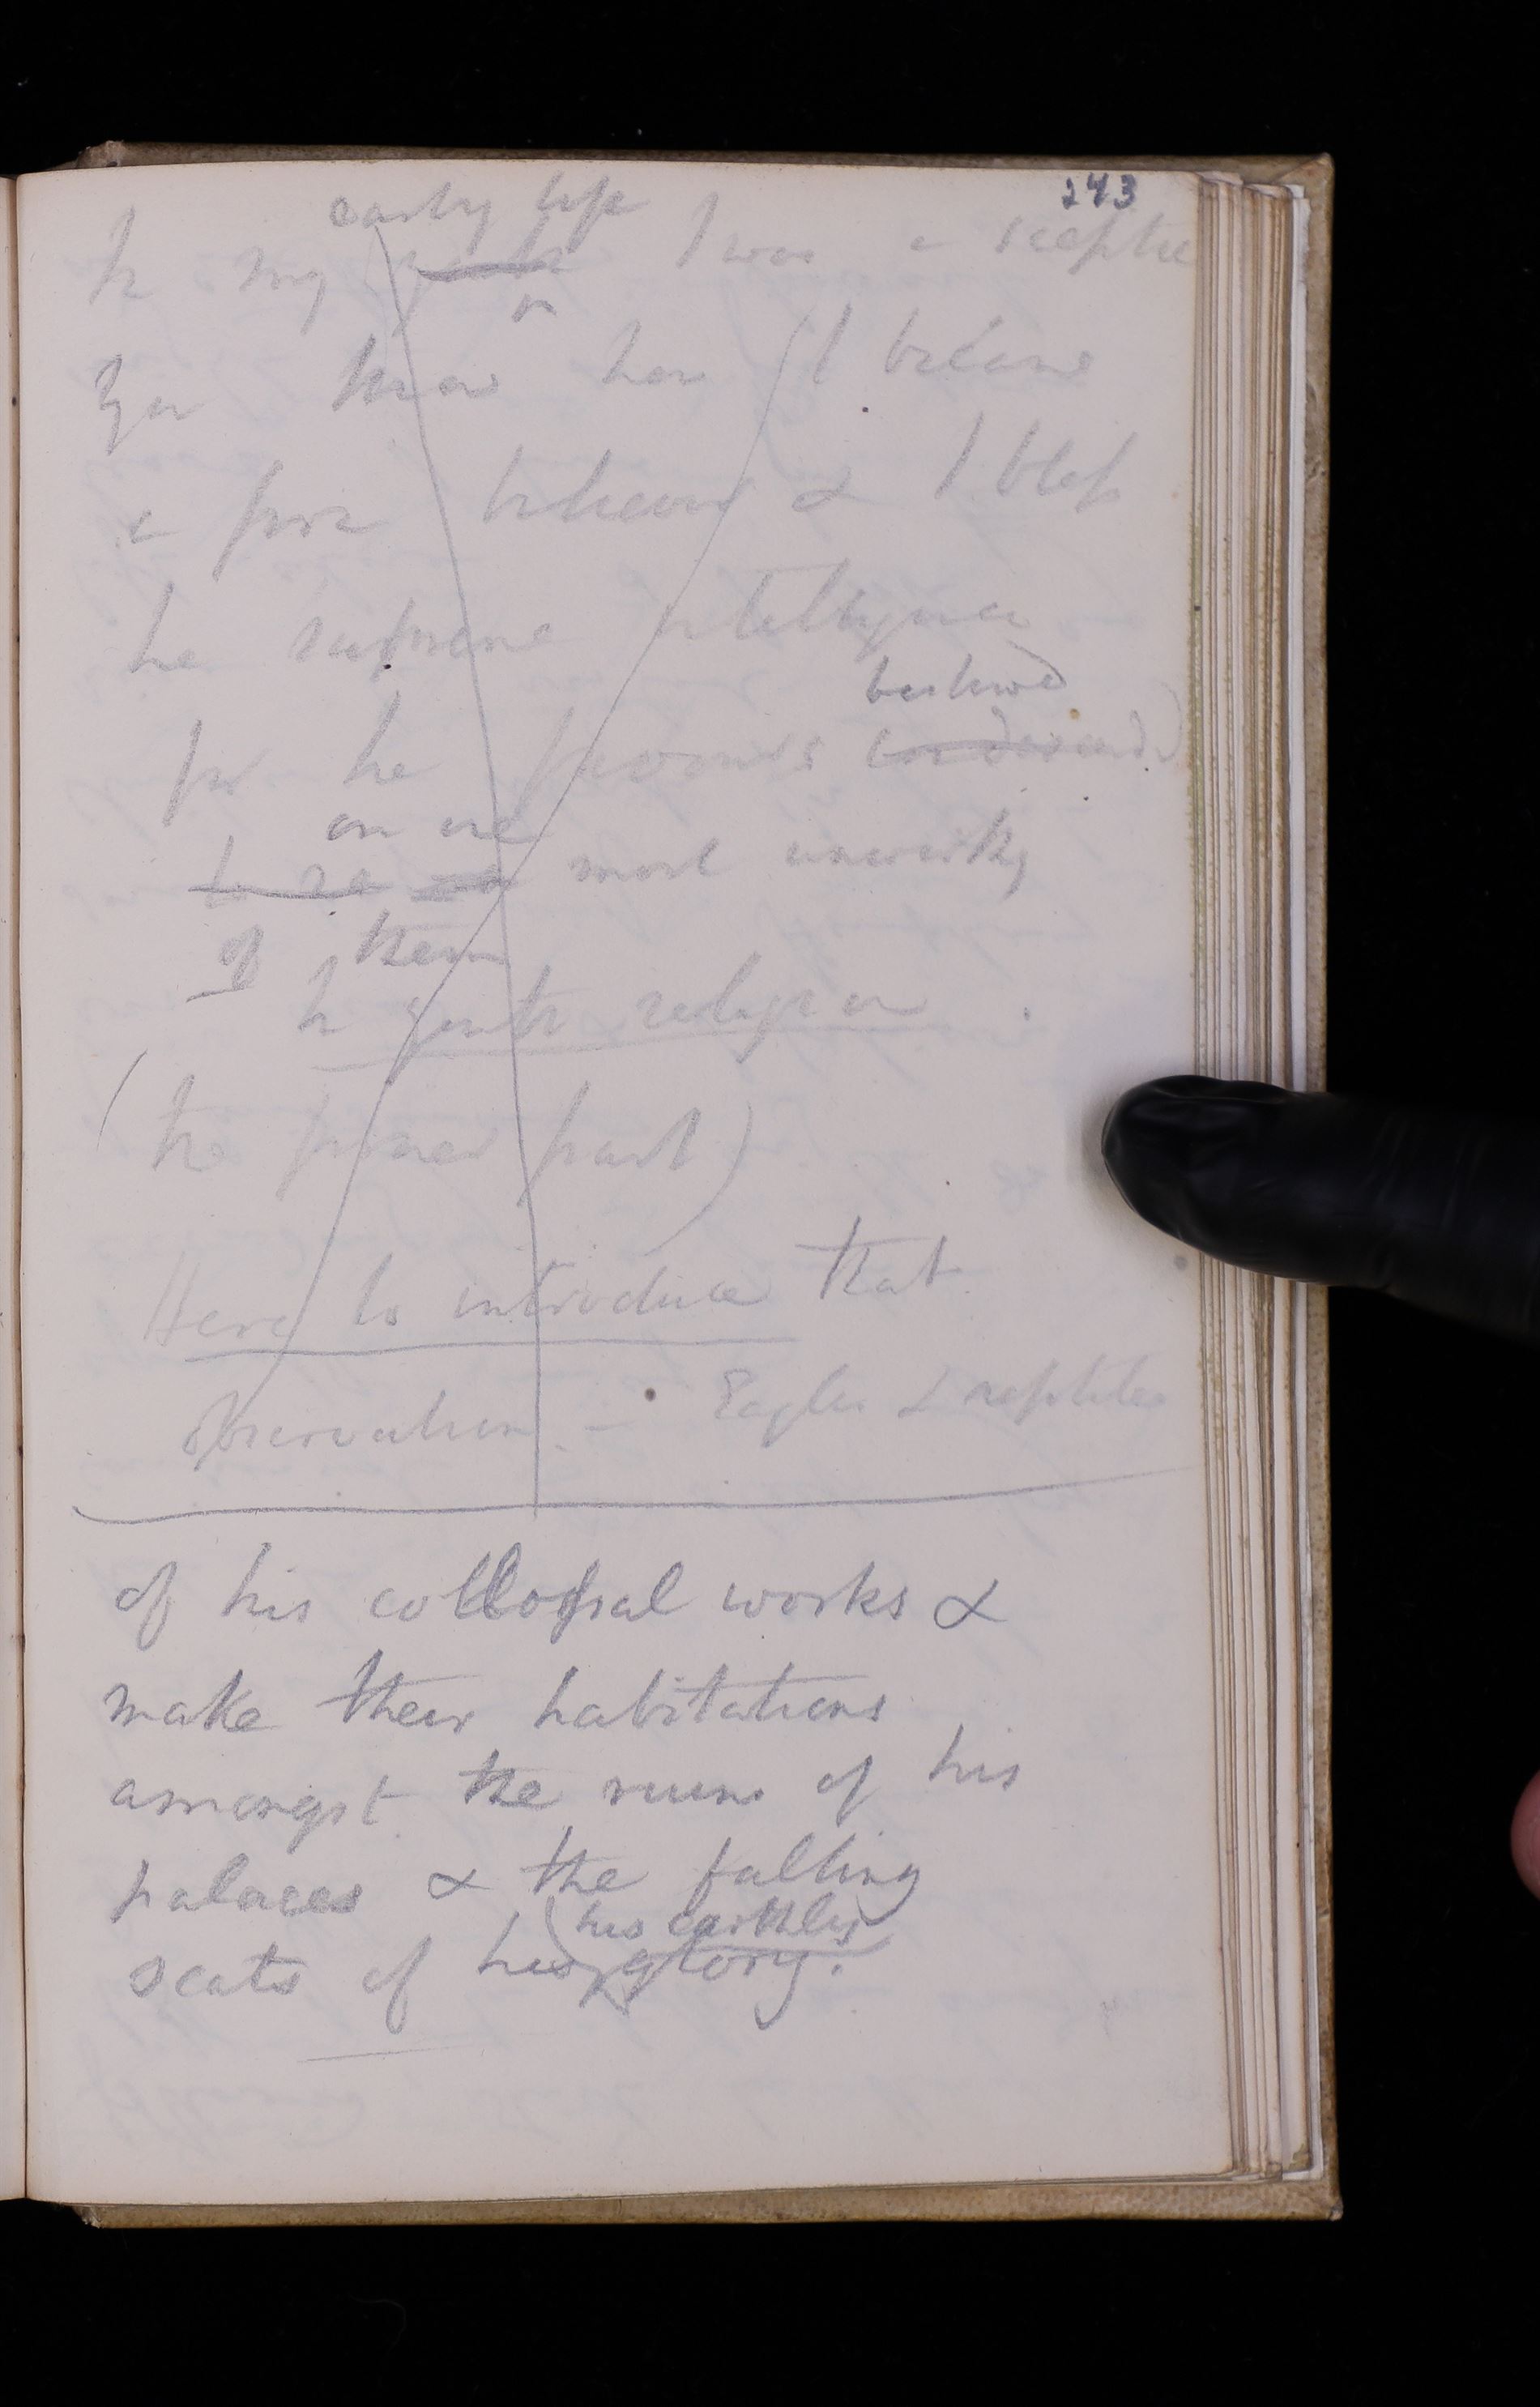 243
early life
In my youth I was a sceptic
You know how I became
a firm believer & I bless
the supreme intelligence
bestowed
for the favours
on me
to me most unworthy
of them
In youth religion
(the former part)
Here to introduce that
observation. — Eagles & reptiles
of his collossal works &
make their habitations
amongst the ruins of his
palaces & the falling
his earthly
seats of his glory.